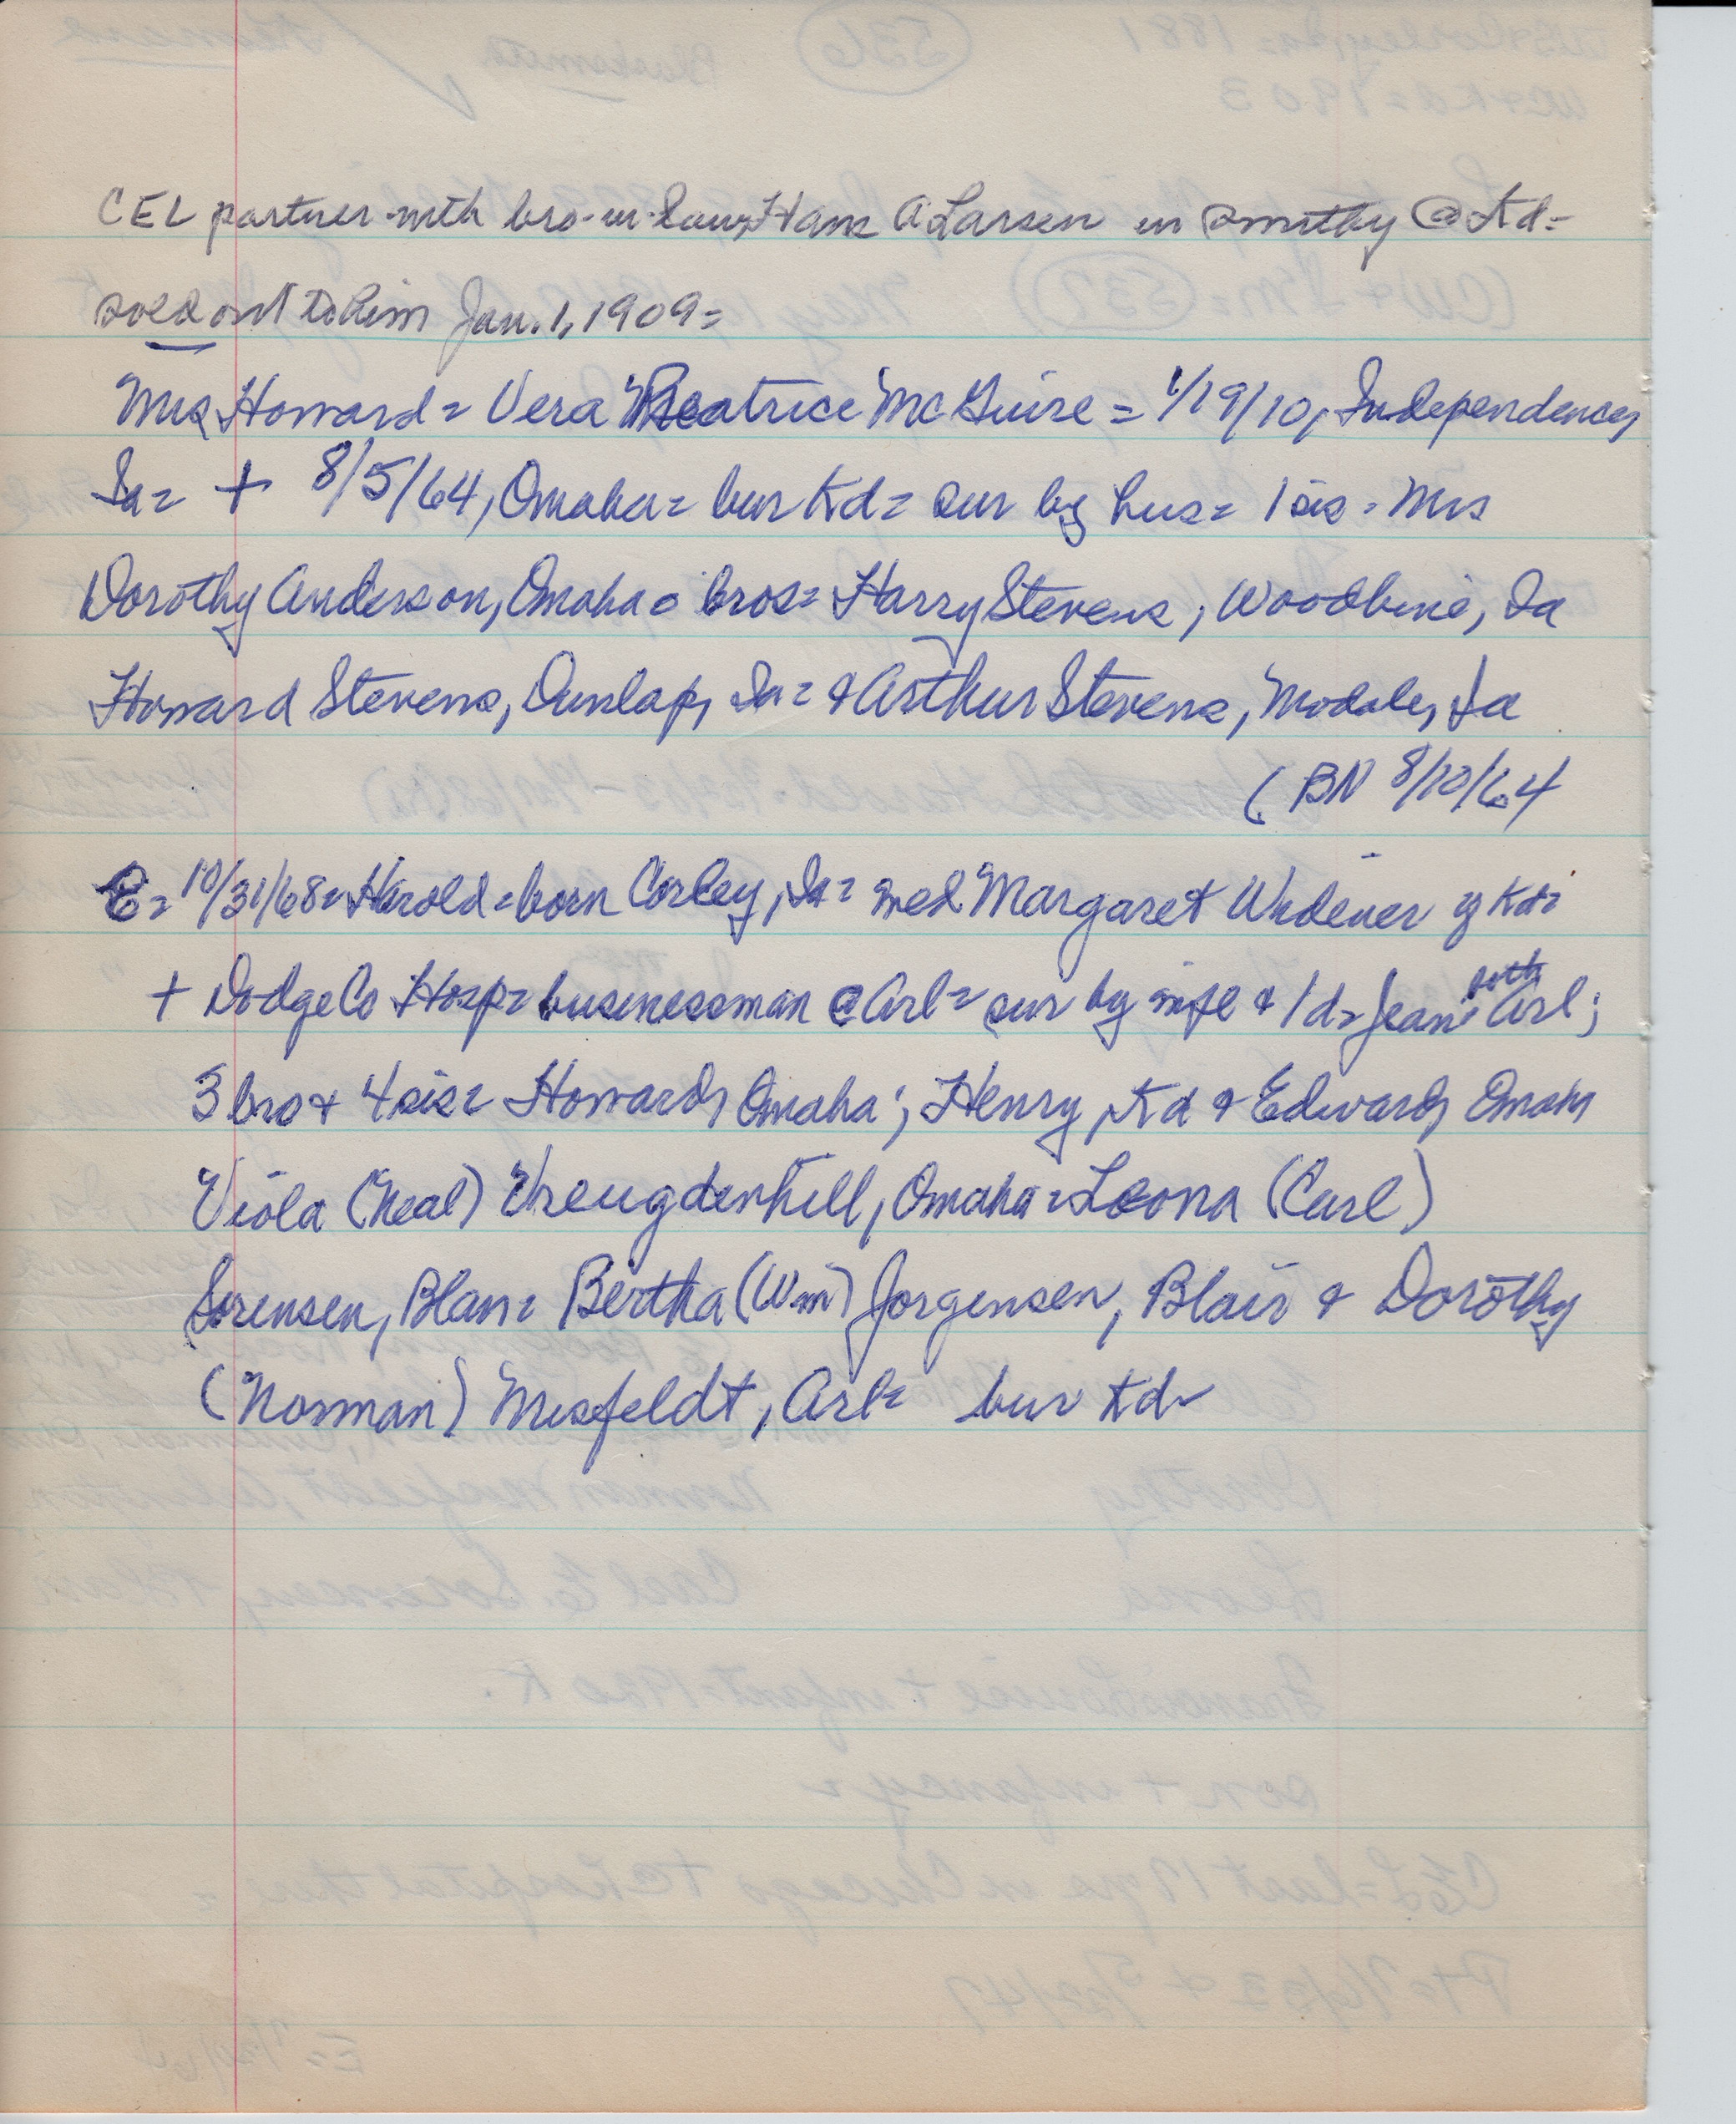 CEL partner with bro-in-law, Hans A Larsen in smithy @ Kd=
sold out to him Jan. 1, 1909=
Mrs Howard = Vera Beatrice McGuire = 1/19/10, Independence,
Ia = + 8/5/64, Omaha = bur Kd = sur by hus = 1 sis - Mrs
Dorothy Anderson, Omaha = bros = Harry Stevens, Woodbine, Ia
Howard Stevens, Dunlap, Ia = & Arthur Stevens, Modale, Ia
(BN 8/10/64
E = 10/31/68 = Harold = born Corley, Ia = med Margaret Widener of Kd =
both
+ Dodge Co Hosp = businessman @ Arl = sur by wife & 1 d = Jean Arl;
3 bro & 4 sis = Howard, Omaha; Henry, Kd & Edward, Omaha
Viola (Neal) Vreugdenhill, Omaha = Leona (Carl)
Sorensen, Blair = Bertha (Wm) Jorgensen, Blair & Dorothy
(Norman) Misfeldt, Arl = bur Kd